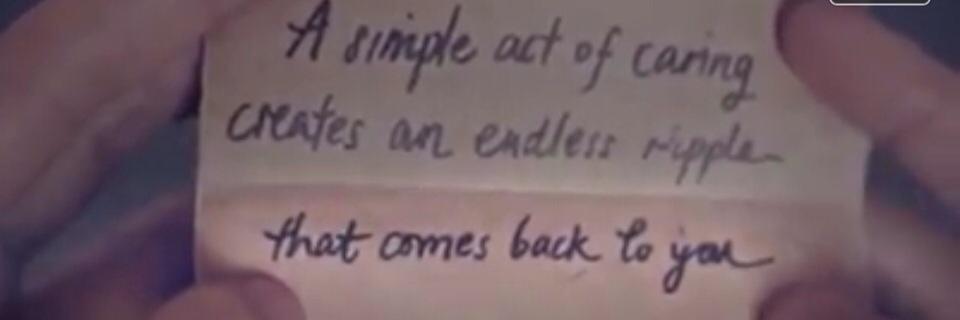 A simple act of caring
creates an endless ripple
that comes back to you